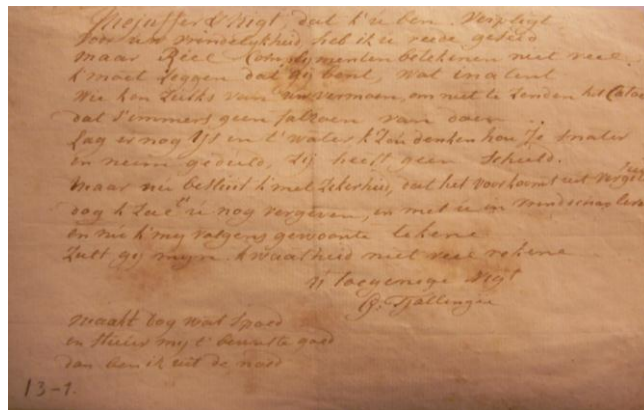 Mejuffer & Nigt dat k'u ben Verpligt
voor uw vrindelykhid heb ik u reede gesegd
maar Veel Complymenten betekenen niet veel
k moet Zeggen dat gy bent, wat
Wie kon Zulks van vermoen, om niet te Zenden het
dat immers geen van doen
Lag er nog Ys in t' water k Zou denken hou Je snater
en neem geduld, Zy heeft geen Schuld.
maar nu besluit k' met Zekerhid, dat het voorkomt uit
dog k Zal u nog vergeven, en met u in vrindschap leven
en nu k' my volgens gewoonte tekene
Zult gy myn kwaadheid niet veel rekene
U toegenege Nigt
maakt dog wat Spoed
en Stuur my t' bewuste goed
dan ben ik uit de nood
13-1.